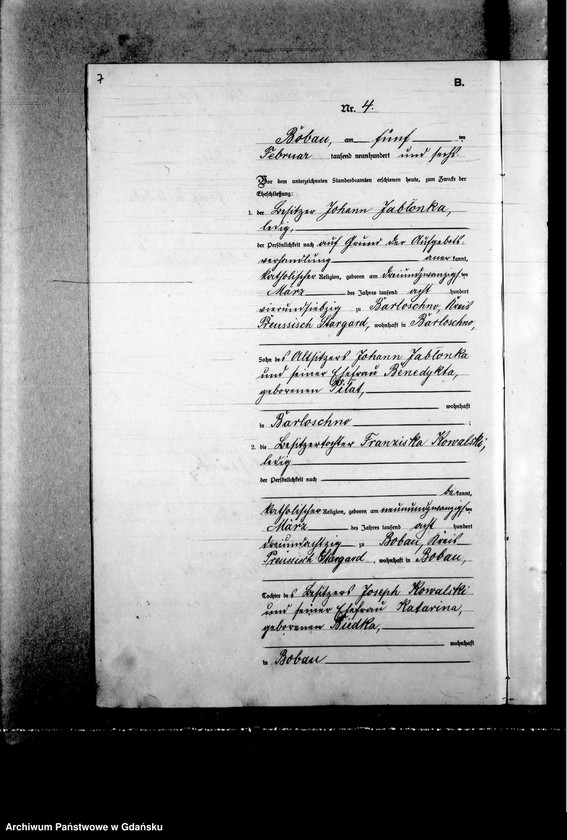 7
B.
Nr. 4.
Bobau, am fünf ten
Februar tausend neunhundert und sechs
Vor dem unterzeichneten Standesbeamten erschienen heute, zum Zwecke der
Eheschließung:
1. der Besitzer Johann Jabłonka,
ledig,
der Persönlichkeit nach auf Grund der Aufgebots-
verhandlung aner kannt,
katholischer Religion, geboren am dreiundzwanzigsten
März des Jahres tausend acht hundert
vierundsiebzig zu Barloschno, Kreis
Preussisch Stargard, wohnhaft in Barloschno,
Sohn des Altsitzers Johann Jabłonka
und seiner Ehefrau Benedykta,
geborenen Piłat,
wohnhaft
in Barloschno ;
2. die Besitzertochter Franziska Kowalski,
ledig
der Persönlichkeit nach
be kannt,
katholischer Religion, geboren am neunundzwanzigsten
März des Jahres tausend acht hundert
dreiundachtzig zu Bobau, Kreis
Preussisch Stargard, wohnhaft in Bobau,
Tochter des Besitzers Joseph Kowalski
und seiner Ehefrau Katarina,
geborenen
wohnhaft
in Bobau
Archiwum Państwowe w Gdańsku